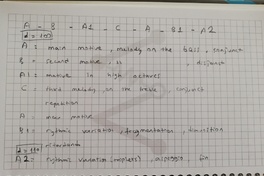 A - B - A1 - C - A - B1 - A2
A: main motive, melody on the bass, conjunct
B: second motive, " , disjunct
A1: motive in high octaves
C: third melody, on the treble, conjunct
repetition
A: main motive
B1: rythmic variation, fragmentation, transition
ritardando
A2: rythmic variation (triplets), arpeggio, fin